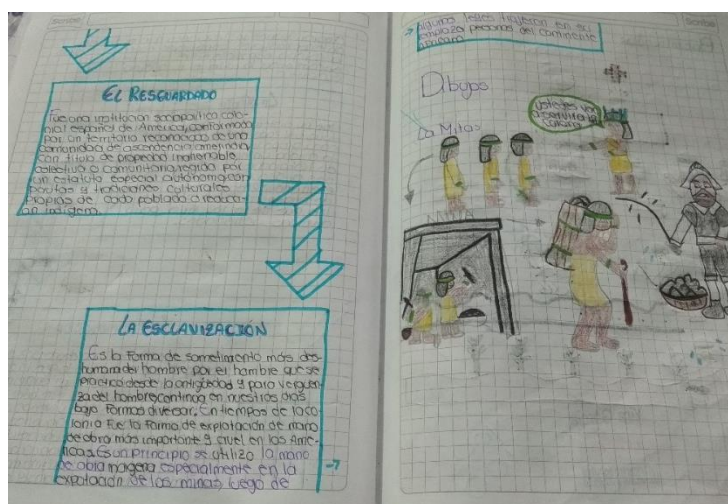 Scribe
EL RESGUARDADO
Fue una institucion sociopolitica colo-
nial español de America, conformado
por un territorio reconocidos de una
comunidad de ascendencia amerindia,
con titulo de propiedad inalienable,
colectiva o comunitaria, regido por
un estatuto especial autonomo, con
pautas y tradiciones culturales
propias de cada poblado o
indigena.
LA ESCLAVIZACIÓN
Es la forma de sometimiento más des-
humana del hombre por el hombre que se
practicó desde la antigüedad y para verguen-
za del hombre, continua en nuestros dias
bajo formas En tiempos de la co-
lonia fue la forma de explotación de mano
de obra más importante y cruel en las Amé-
ricas. En un principio se utilizo la mano
de obra especialmente en la
explotación de las minas, luego de
algunas leyes trajeron en su
emplazo personas del continente
africano.
Dibujos
La Mitas
ustedes van
a
MINA
Scribe